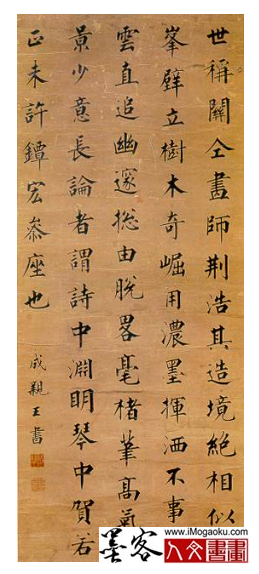 世稱關仝畫師荊浩其造境絕相似
峯壁立樹木奇崛用濃墨揮洒不事
雲直追幽邃総由脫畧毫楮筆高氣
景少意長論者謂詩中淵明琴中賀若
正未許鐔宏叅座也
成親王書
www.iMogaoku.com
墨客